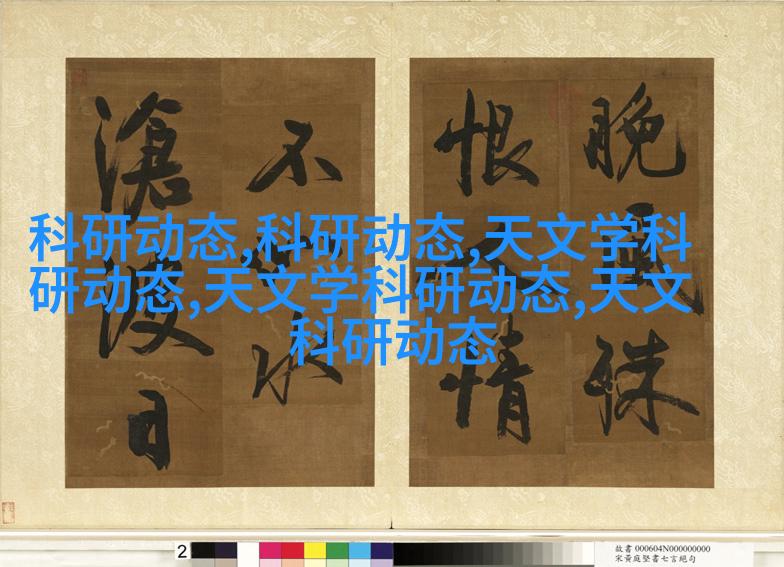 科研动态,科研动态,天文学科
研动态,天文学科研动态,天文
科研动态
晚風殊
恨情
不水
滄日
2
故書 000604N000000000
宋黃庭堅書七言絕句